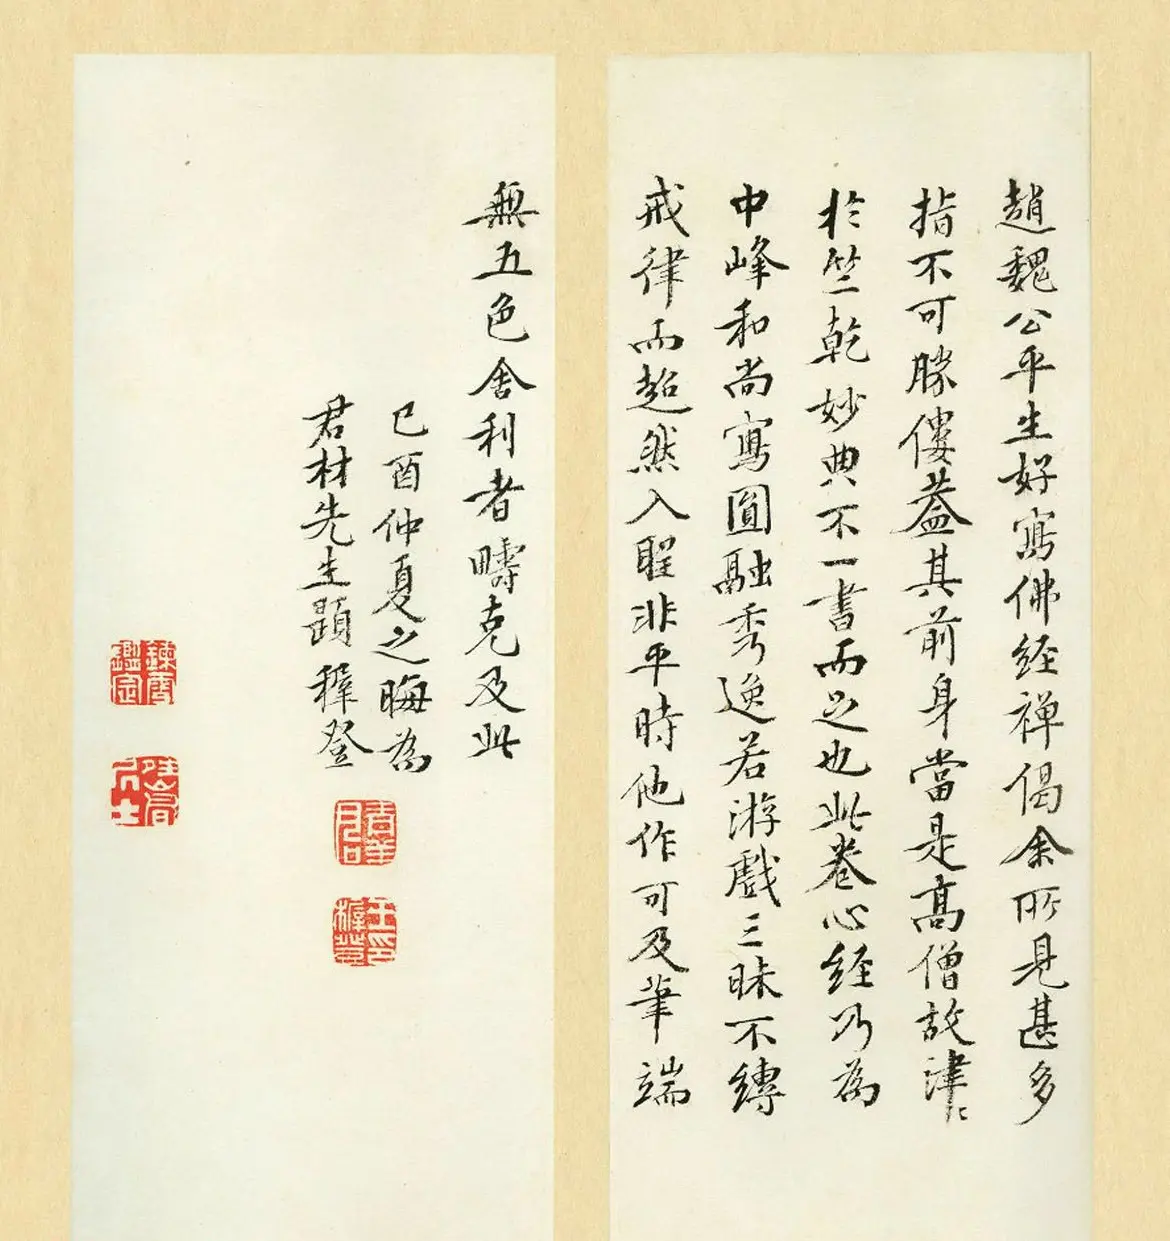 趙魏公平生好寫佛経禅偈余所見甚多
指不可勝僂葢其前身當是髙僧故津〻
於竺乾妙典不一書而足也此卷心経乃為
中峰和尚寫圓融秀逸若游戲三昧不縛
戒律而超然入聖非平時他作可及筆端
無五色舍利者疇克及此
己酉仲夏之晦為
君材先生題 穉登
王印穉登
錬雪鑑定